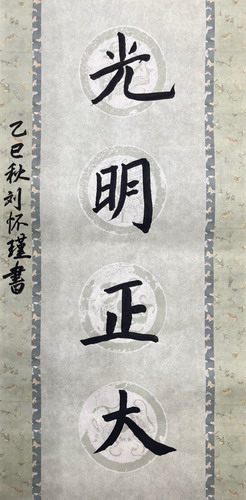 光明正大
乙巳秋刘怀瑾書